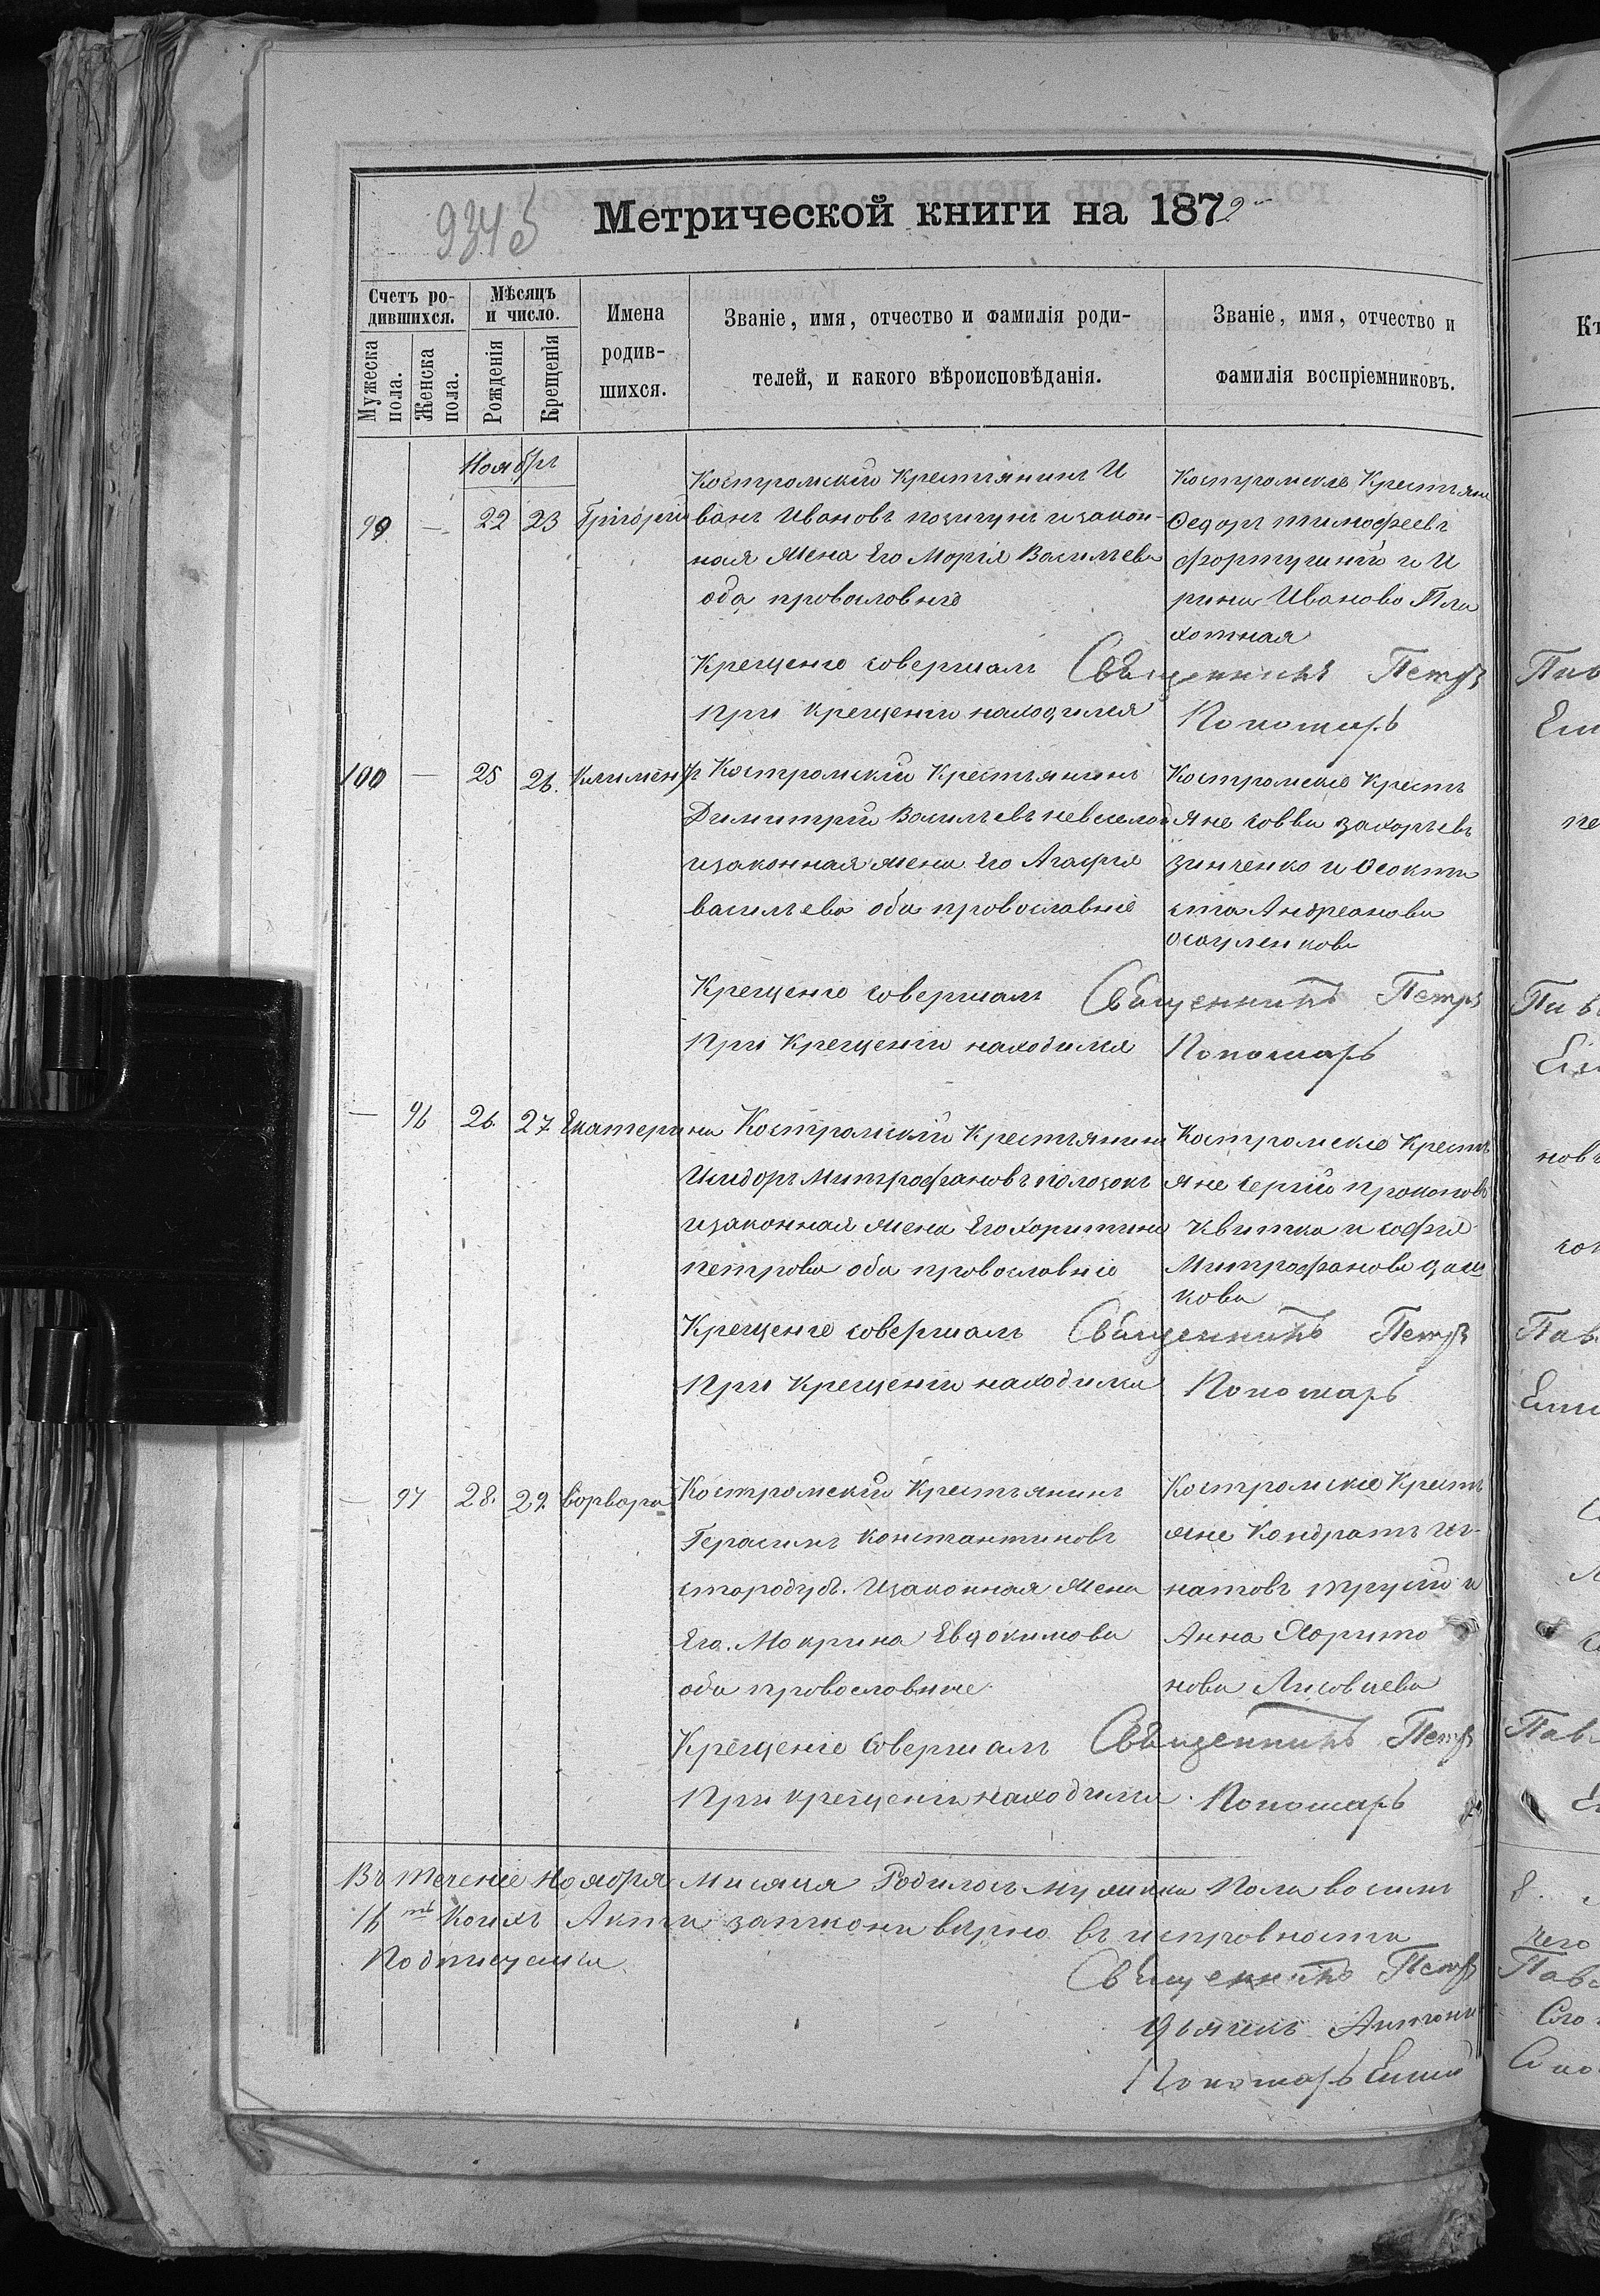 Метрической книги на 1872
934
Счетъ ро-
дившихся.
Мужеска
пола.
Женска
пола.
Мѣсяцъ
и число.
Рожденія
Крещенія
Имена
родив-
шихся.
Званіе, имя, отчество и фамилія роди-
телей, и какого вѣроисповѣданія.
Званіе, имя, отчество и
фамилія воспріемниковъ.
Ноябрь
99 — 22 23 Григорій
Костромскій Крестьянинъ И
ванъ Ивановъ и закон-
ная Жена Его Марія Васильева
оба провославніе
Костромскіе Крестьяне
Федоръ тимофеевъ
и И
рина Иванова Пла
хотная
Крещеніе совершалъ Священникъ Петръ
при крещеніи находился Пономарь
100 — 25 26. Климентъ
Костромскій Крестьянинъ
Димитрій Васильевъ невселой
изаконная жена Его Агафія
васильева оба провославніе
Костромскіе Кресть
яне савва захарьевъ
зинченко и Феокти
ста Андреанова
осауленкова
Крещеніе совершалъ Священникъ Петръ
При Крещеніи находился Пономарь
— 96 26 27 Екатерина
Костромскій Крестьянинъ
Исидоръ Митрофановъ
изаконная жена Его Харитина
петрова оба провославніе
Костромскіе Кресть
яне сергій прокоповъ
Квитка и софія
Митрофанова
кова
Крещеніе совершалъ Священникъ Петръ
При крещеніи находился Пономарь
— 97 28. 29. Ворвара
Костромскій Крестьянинъ
Герасимъ константиновъ
стародубъ. Изаконная Жена
Его. Мокрина Евдокимова
оба провославніе
Костромскіе Кресть
яне Кондратъ Иг-
натовъ и
Анна Харито
нова Лисовцева
Крещеніе Совершалъ Священникъ Петръ
При крещеніи находился Пономарь
Въ теченіе Ноября Родилось Пола восемь
16 Коихъ Акти вѣрно въ исправности
Священникъ Петръ
дьячекъ Антоній
Пономарь